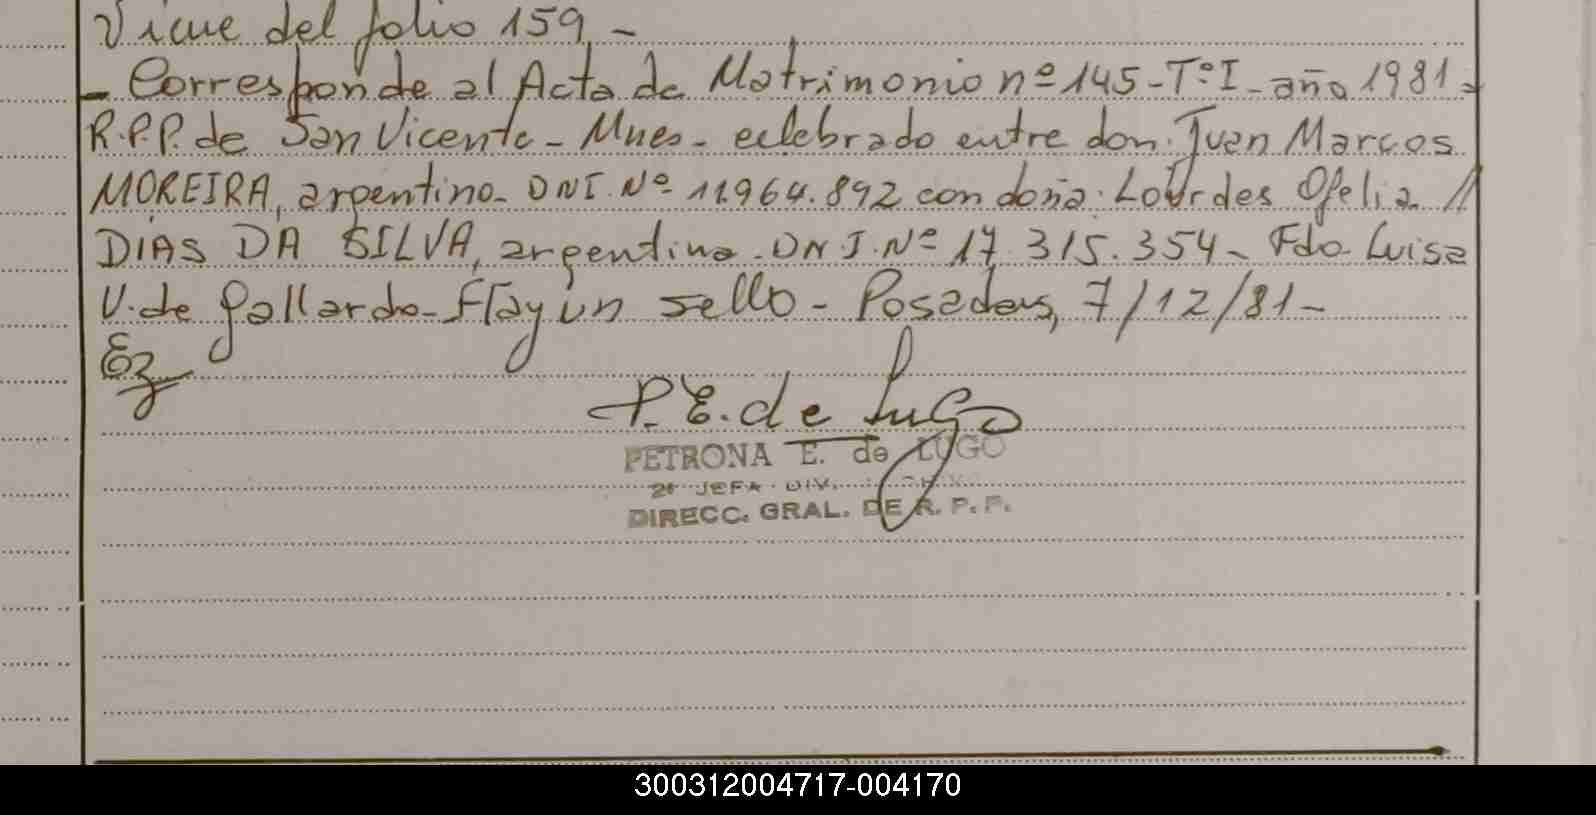 Viene del folio 159.-
- Corresponde al Acta de Matrimonio nº 145 - Tº I - año 1981 -
R.P.P. de San Vicente - Mnes - celebrado entre don: Juan Marcos
MOREIRA, argentino - DNI. Nº 11.964.892 con doña: Lourdes Ofelia //
DIAS DA SILVA, argentina - DNI. Nº 17.315.354 - Fdo Luisa
V. de Gallardo - Hay un sello - Posadas, 7/12/81 -
Ez
P. E. de Lugo
PETRONA E. de LUGO
2º JEFA DIV.
DIRECC. GRAL. DE R. P. P.
300312004717-004170